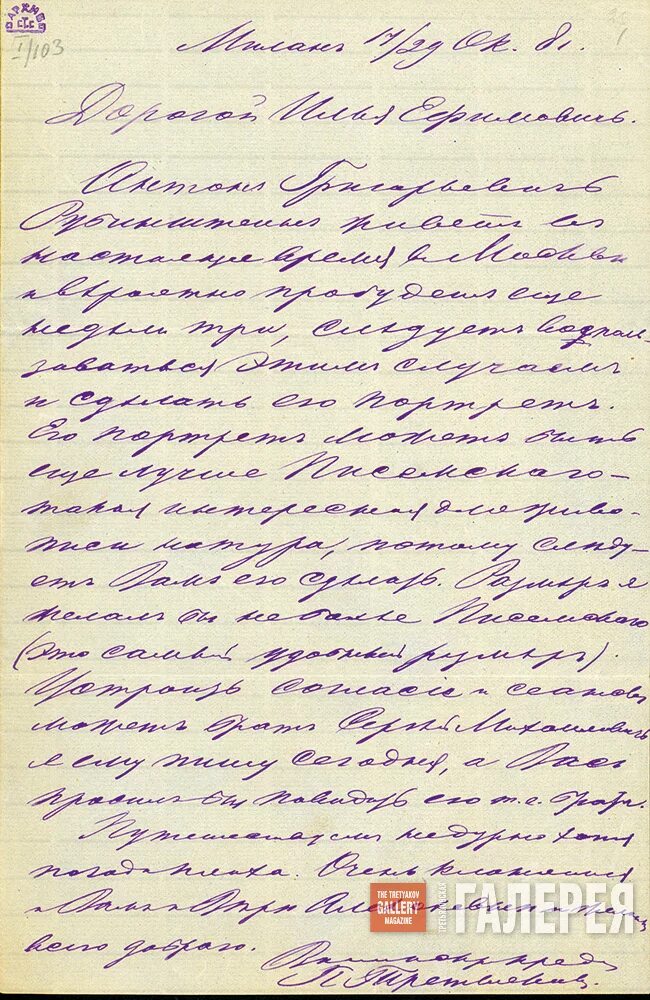 АРХИВ
СТС
I/103
Миланъ 17/29 Ок. 81.
Дорогой Илья Ефимовичъ.
Антонъ Григорьевичъ
Рубинштейнъ живетъ въ
настоящее время въ Москвѣ
и вѣроятно пробудетъ еще
недѣли три, слѣдуетъ воспользо-
ваться этимъ случаемъ
и сдѣлать его портретъ.
Его портретъ можетъ быть
еще лучше Писемскаго –
такая интересная для живо-
писи натура, потому слѣду-
етъ Вамъ его сдѣлать. Размѣръ я
желалъ бы не болѣе Писемскаго
(это самый удобный размѣръ).
Устроить согласіе и сеансы
можетъ братъ Сергѣй Михайловичъ
я ему пишу сегодня, а Васъ
просилъ бы повидать его т. е. брата.
Путешествуемъ недурно хотя
погода плоха. Очень кланяемся
и Вамъ и Вѣрѣ Алексѣевнѣ и
всего добраго.
Вамъ
П. Третьяковъ.
THE TRETYAKOV
GALLERY
MAGAZINE
ТРЕТЬЯКОВСКАЯ
ГАЛЕРЕЯ